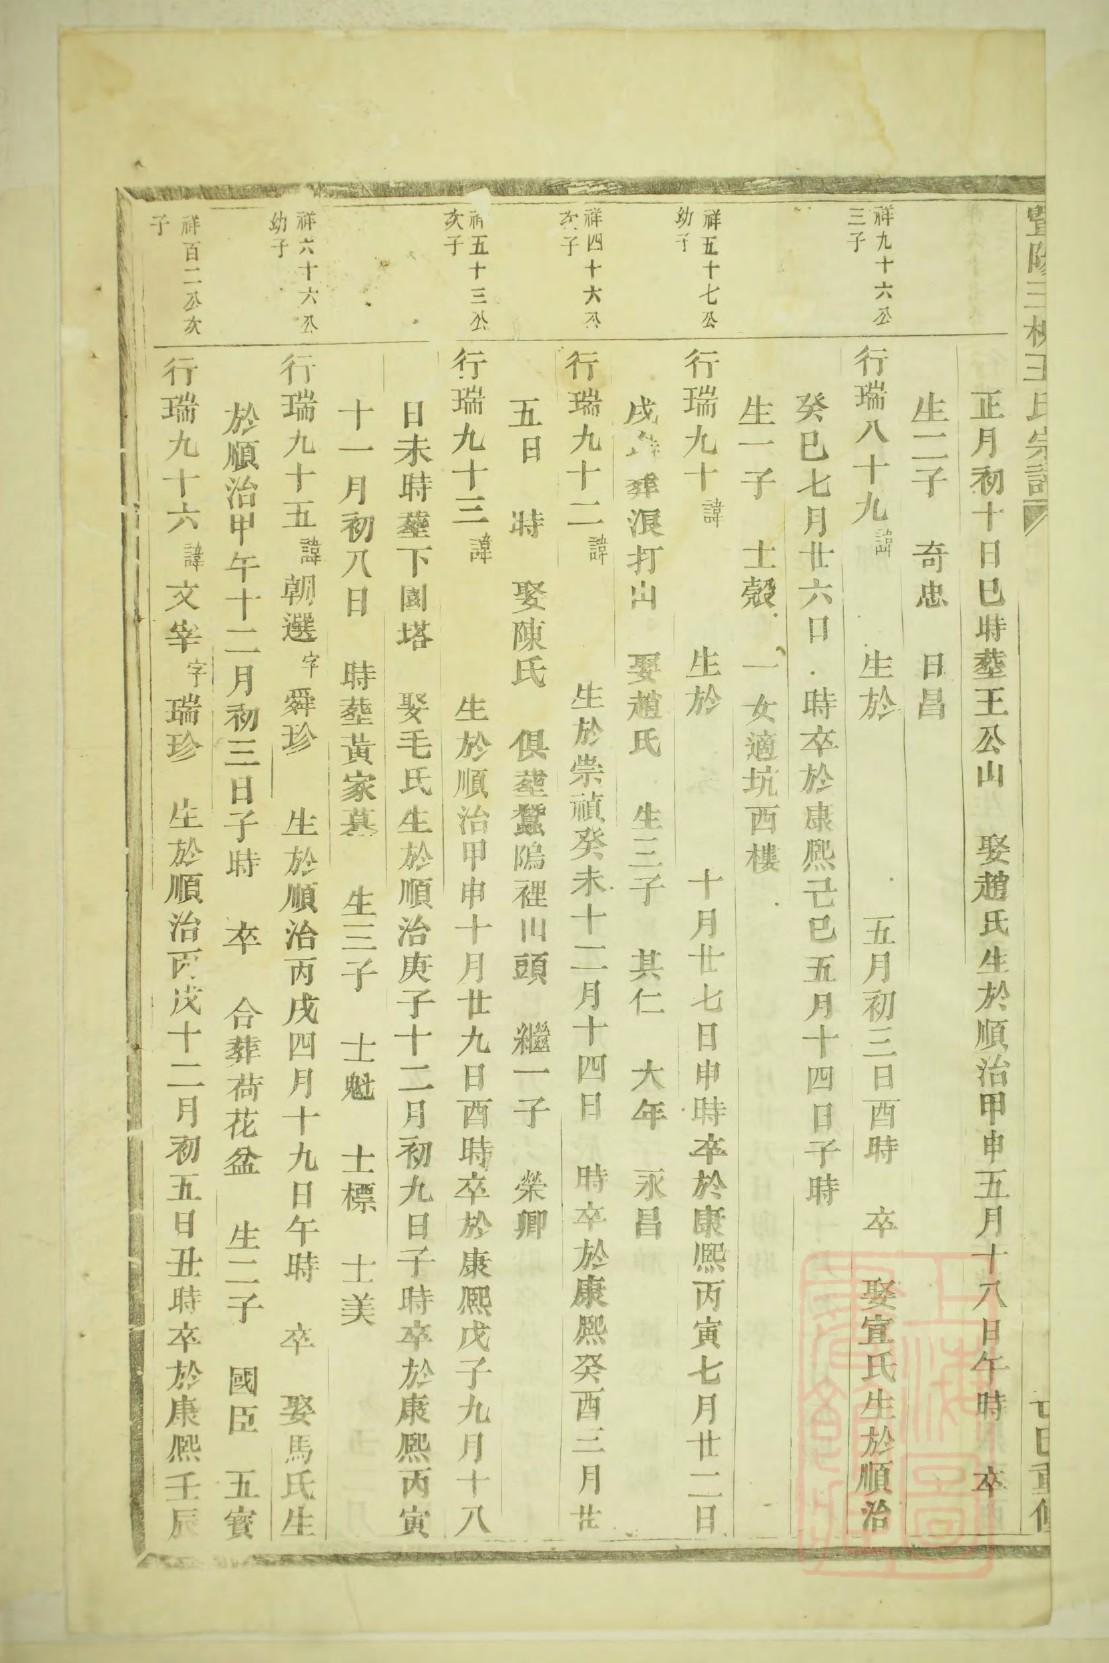 暨陽三橋王氏宗譜
巳重修
正月初十日巳時塟王公山 娶趙氏生於順治甲申五月十八日午時 卒
生二子 奇忠 日昌
祥九十六公三子
行瑞八十九諱 生於 五月初三日酉時 卒 娶宣氏生於順治
癸巳七月廿六日 時卒於康熙己巳五月十四日子時
生一子 士殼 一女適坑西樓
祥五十七公幼子
行瑞九十諱 生於 十月廿七日申時卒於康熙丙寅七月廿二日
戌時葬泿打山 娶趙氏 生三子 其仁 大年 永昌
祥四十六公次子
行瑞九十二諱 生於崇禎癸未十二月十四日 時卒於康熙癸酉三月廿
五日 時 娶陳氏 俱塟蠶隖裡山頭 繼一子 榮卿
祥五十三公次子
行瑞九十三諱 生於順治甲申十月廿九日酉時卒於康熙戊子九月十八
日未時塟下園塔 娶毛氏生於順治庚子十二月初九日子時卒於康熙丙寅
十一月初八日 時塟黃家墓 生三子 士魁 士標 士美
祥六十六公幼子
行瑞九十五諱朝選字舜珍 生於順治丙戌四月十九日午時 卒 娶馬氏生
於順治甲午十二月初三日子時 卒 合葬荷花盆 生二子 國臣 五賓
祥百二公次子
行瑞九十六諱文宰字瑞珍 生於順治丙戌十二月初五日丑時卒於康熙壬辰
上海圖書館藏